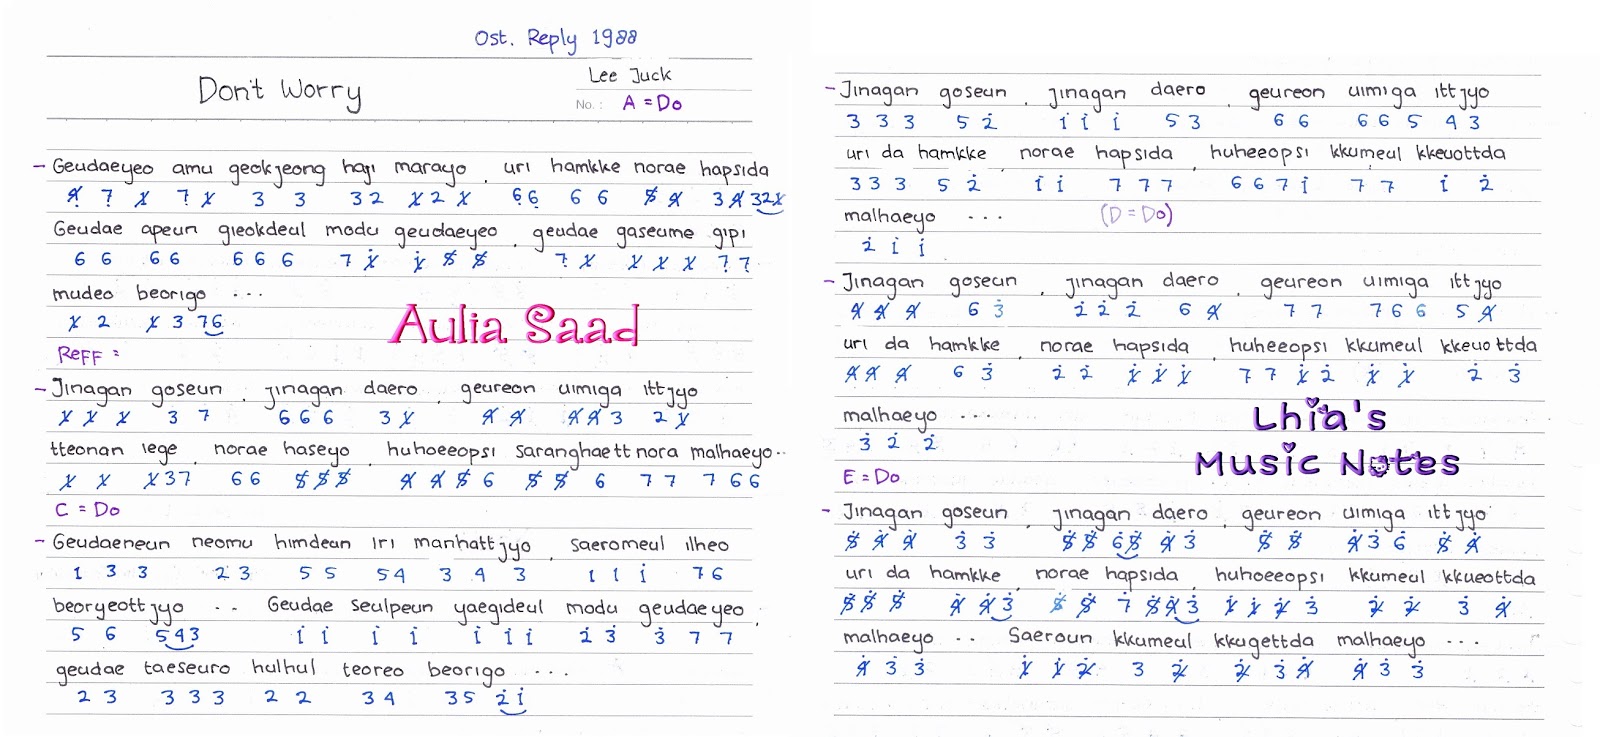 Ost. Reply 1988
Don't Worry
Lee Juck
No. : A = Do
- Geudaeyeo amu geokjeong haji marayo , uri hamkke norae hapsida
4 7 1 7 1 3 3 3 2 1 2 1 6 6 6 6 5 4 3 4 3 2 1
Geudae apeun gieokdeul modu geudaeyeo , geudae gaseume gipi
6 6 6 6 6 6 6 7 1 1 5 5 7 1 1 1 1 7 7
mudeo beorigo ...
1 2 1 3 7 6
Reff :
- Jinagan goseun , jinagan daero , geureon uimiga ittjyo
1 1 1 3 7 6 6 6 3 1 4 4 4 4 3 2 1
tteonan iege , norae haseyo , huhoeeopsi saranghaett nora malhaeyo..
1 1 1 3 7 6 6 5 5 5 4 4 5 6 5 5 6 7 7 7 6 6
C = Do
- Geudaeneun neomu himdeun iri manhattjyo , saeromeul ilheo
1 3 3 2 3 5 5 5 4 3 4 3 1 1 i 7 6
beoryeottjyo .. Geudae seulpeun yaegideul modu geudaeyeo ,
5 6 5 4 3 i i i i i i i 2 3 3 7 7
geudae taeseuro hulhul teoreo beorigo ...
2 3 3 3 3 2 2 3 4 3 5 2 i
Aulia Saad
- Jinagan goseun , jinagan daero , geureon uimiga ittjyo
3 3 3 5 2 i i i 5 3 6 6 6 6 5 4 3
uri da hamkke , norae hapsida , huheeopsi kkumeul kkeuottda
3 3 3 5 2 i i 7 7 7 6 6 7 i 7 7 i 2
malhaeyo ... (D = Do)
2 i i
- Jinagan goseun , jinagan daero , geureon uimiga ittjyo
4 4 4 6 3 2 2 2 6 4 7 7 7 6 6 5 4
uri da hamkke , norae hapsida , huheeopsi kkumeul kkeuottda
4 4 4 6 3 2 2 1 1 1 7 7 1 2 1 1 2 3
malhaeyo ...
3 2 2
Lhia's
Music Notes
E = Do
- Jinagan goseun , jinagan daero , geureon uimiga ittjyo
5 4 4 3 3 5 5 6 5 4 3 5 5 4 3 6 5 4
uri da hamkke , norae hapsida , huhoeeopsi kkumeul kkueottda
5 5 5 4 4 3 5 5 7 5 4 3 1 1 2 3 2 2 3 4
malhaeyo .. Saeroun kkumeul kkugettda malhaeyo ...
4 3 3 1 1 2 3 2 2 3 4 4 3 3